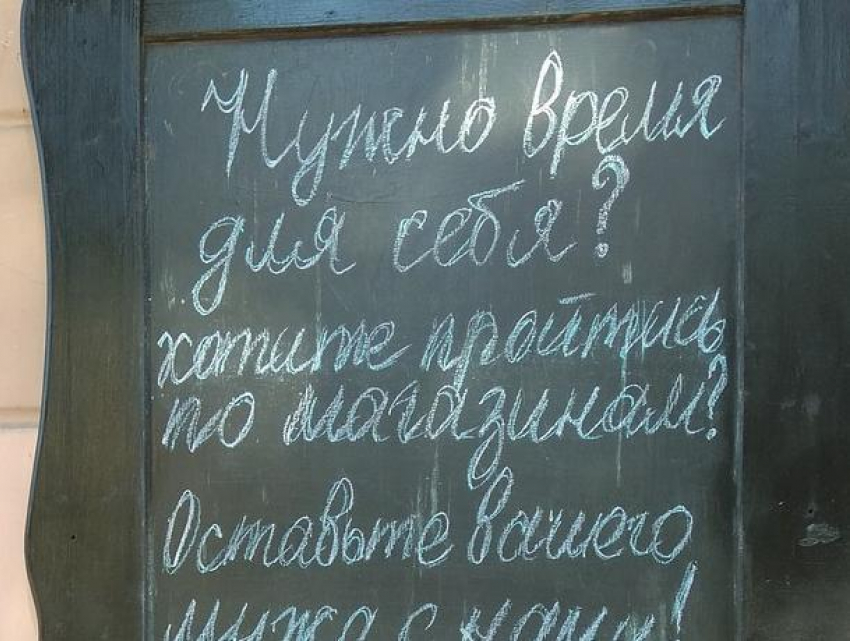 Нужно время
для себя?
хотите пройтись
по магазинам?
Оставьте вашего
мужа с нами!